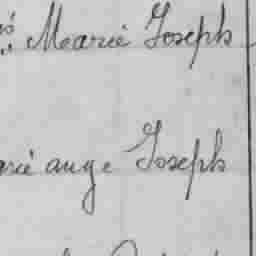 Mearie Joseph
rie ange Joseph